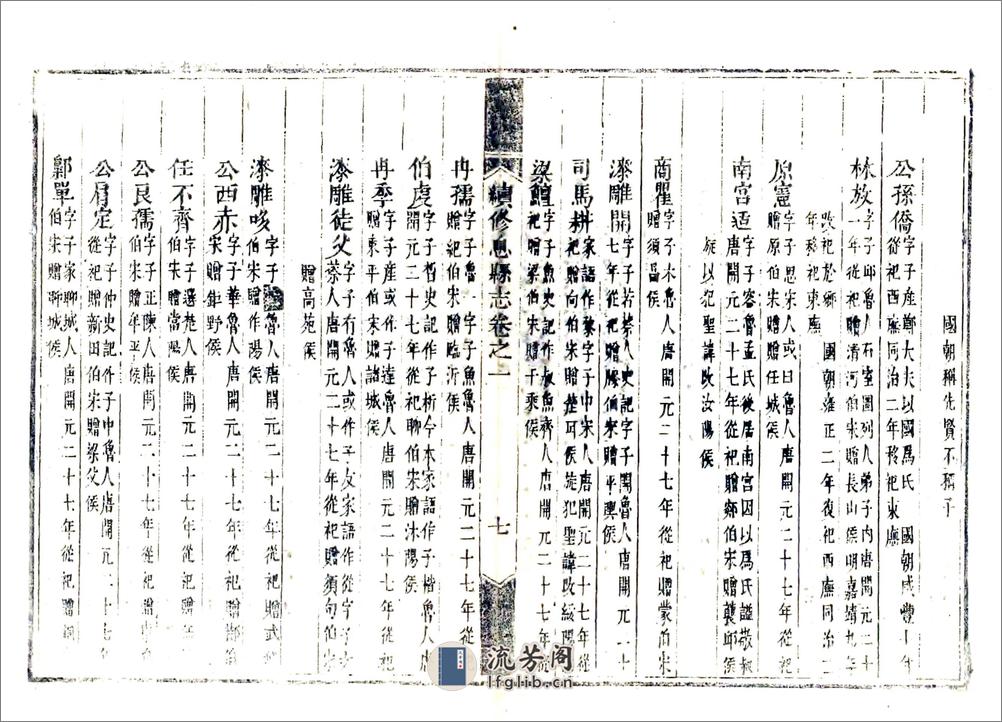 國朝稱先賢不稱子
公孫僑字子產鄭大夫以國爲氏 國朝咸豐十年
從祀西廡同治二年移祀東廡
林放字子邱魯人石室圖列入弟子內唐開元二十
一年從祀贈清河伯宋贈長山侯明嘉靖九年
改祀於鄉 國朝雍正二年復祀西廡同治二
年移祀東廡
原憲字子思宋人或曰魯人唐開元二十七年從祀
贈原伯宋贈任城侯
南宮适字子容魯孟氏後居南宮因以爲氏諡敬叔
唐開元二十七年從祀贈郯伯宋贈龔邱侯
旋以犯聖諱改汝陽侯
商瞿字子木魯人唐開元二十七年從祀贈蒙伯宋
贈須昌侯
漆雕開字子若蔡人史記字子開魯人唐開元二十
七年從祀贈滕伯宋贈平輿侯
司馬耕家語作犂字子牛宋人唐開元二十七年從
祀贈向伯宋贈楚邱侯旋犯聖諱改綏陽侯
梁鱣字子魚史記作叔魚齊人唐開元二十七年從
祀贈梁伯宋贈千乘侯
續修息縣志卷之一
七
冉孺字子魯一字子魚魯人唐開元二十七年從
祀贈紀伯宋贈臨沂侯
伯虔字子皙史記作子析今本家語作子楷魯人唐
開元二十七年從祀聊伯宋贈沐陽侯
冉季字子產或作子達魯人唐開元二十七年從祀
贈東平伯宋贈諸城侯
漆雕徒父字子有魯人或作子友家語作從字子文
蔡人唐開元二十七年從祀贈須句伯宋
贈高苑侯
漆雕哆字子 魯人唐開元二十七年從祀贈武城
伯宋贈 陽侯
公西赤字子華魯人唐開元二十七年從祀贈郜伯
宋贈鉅野侯
任不齊字子選楚人唐開元二十七年從祀贈任城
伯宋贈當陽侯
公良孺字子正陳人唐開元二十七年從祀贈東牟
伯宋贈牟平侯
公肩定字子仲史記作子中魯人唐開元二十七年
從祀贈新田伯宋贈梁父侯
鄡單字子家聊城人唐開元二十七年從祀贈銅鞮
伯宋贈聊城侯
流芳阁
lfglib.cn